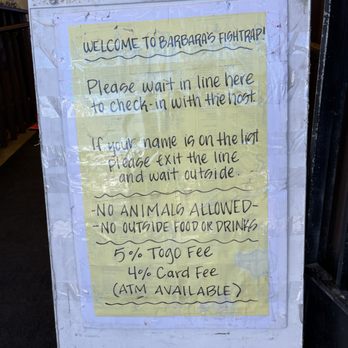 WELCOME TO BARBARA'S FISHTRAP!
Please wait in line here
to check-in with the host
If your name is on the list
please exit the line
and wait outside.
-NO ANIMALS ALLOWED-
-NO OUTSIDE FOOD OR DRINKS
5% TOGO Fee
4% Card Fee
(ATM AVAILABLE)